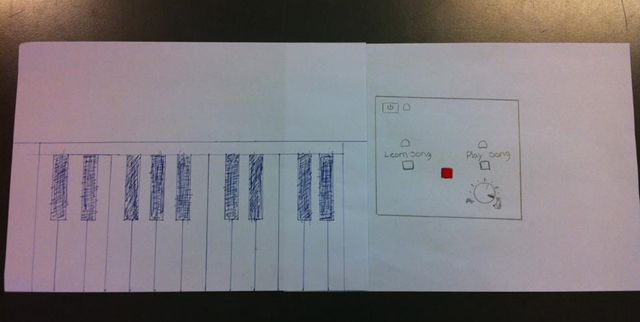 Learn Song
Play Song